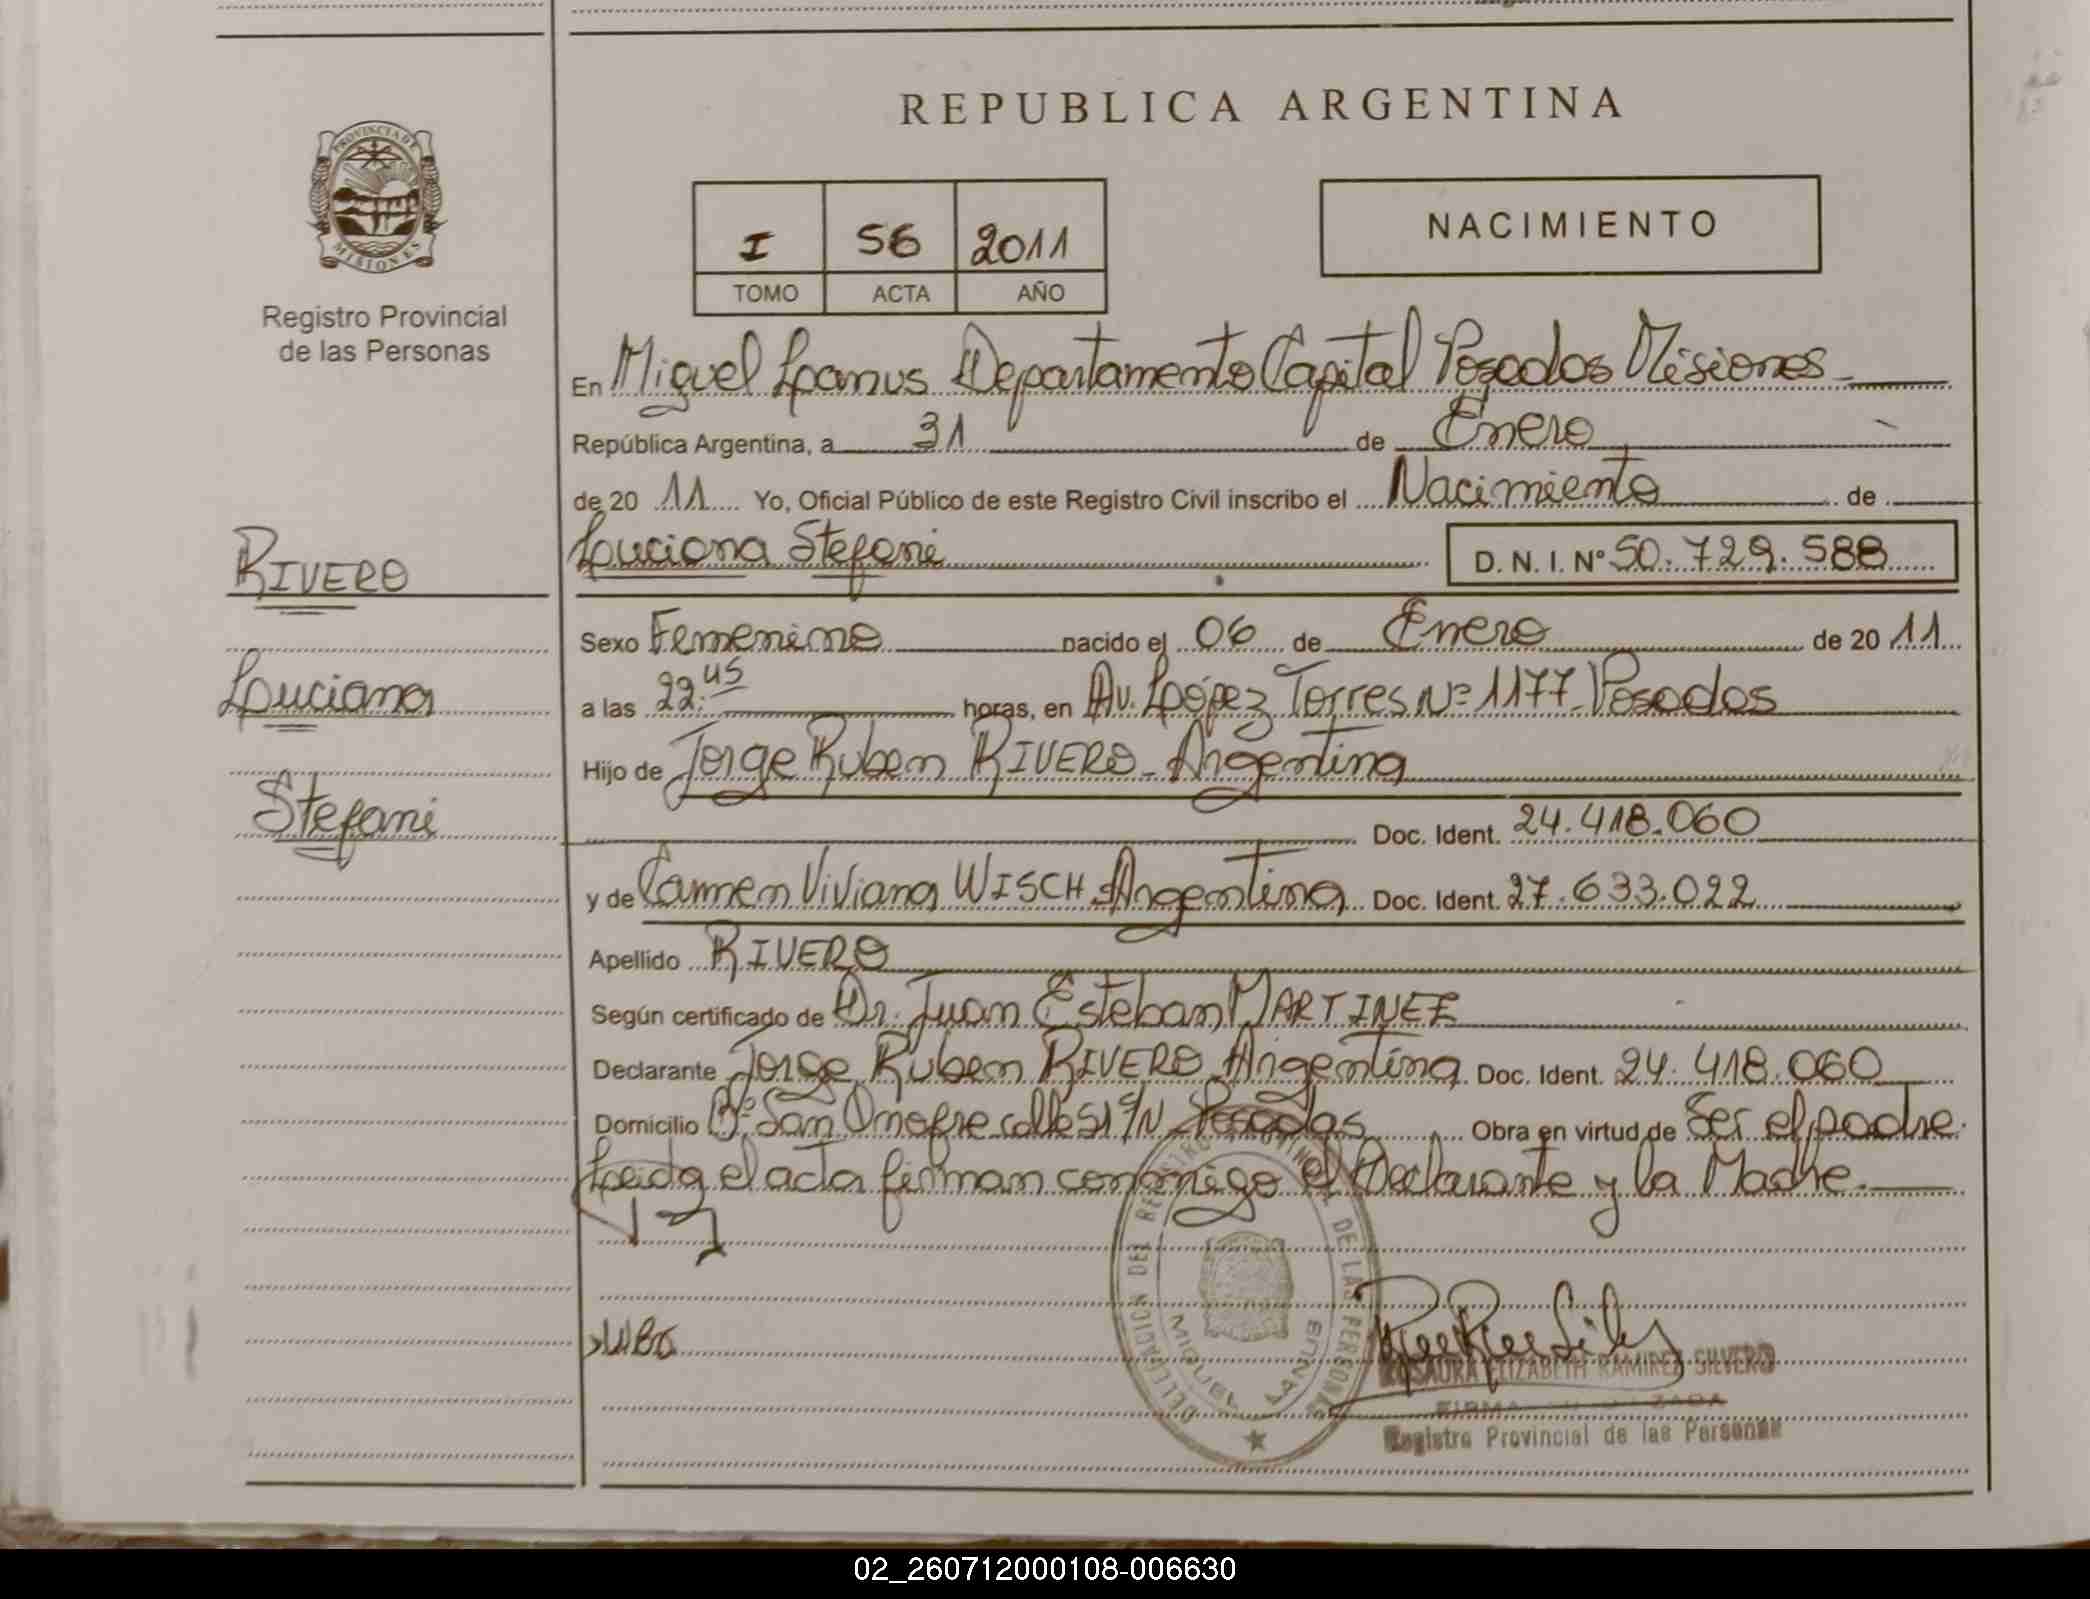 REPUBLICA ARGENTINA
PROVINCIA DE
MISIONES
Registro Provincial
de las Personas
I 56 2011
TOMO ACTA AÑO
NACIMIENTO
En Miguel Lanus Departamento Capital Posadas Misiones
República Argentina, a 31 de Enero
de 2011 Yo, Oficial Público de este Registro Civil inscribo el Nacimiento de
Luciana Stefani D. N. I. Nº 50.729.588
RIVERO
Luciana
Stefani
Sexo Femenino nacido el 06 de Enero de 2011
a las 22:45 horas, en Av. López Torres Nº 1177 Posadas
Hijo de Jorge Ruben RIVERO - Argentina
Doc. Ident. 24.418.060
y de Carmen Viviana WISCH - Argentina Doc. Ident. 27.633.022
Apellido RIVERO
Según certificado de Dr. Juan Esteban MARTINEZ
Declarante Jorge Ruben RIVERO Argentina Doc. Ident. 24.418.060
Domicilio Bº San Onofre calle 51 S/N Posadas Obra en virtud de Ser el padre.
Leida el acta firman conmigo el Declarante y la Madre.
DELEGACION DEL REGISTRO PROVINCIAL DE LAS PERSONAS
MIGUEL LANUS
ROSAURA ELIZABETH RAMIREZ SILVERO
FIRMA
Registro Provincial de las Personas
02_260712000108-006630